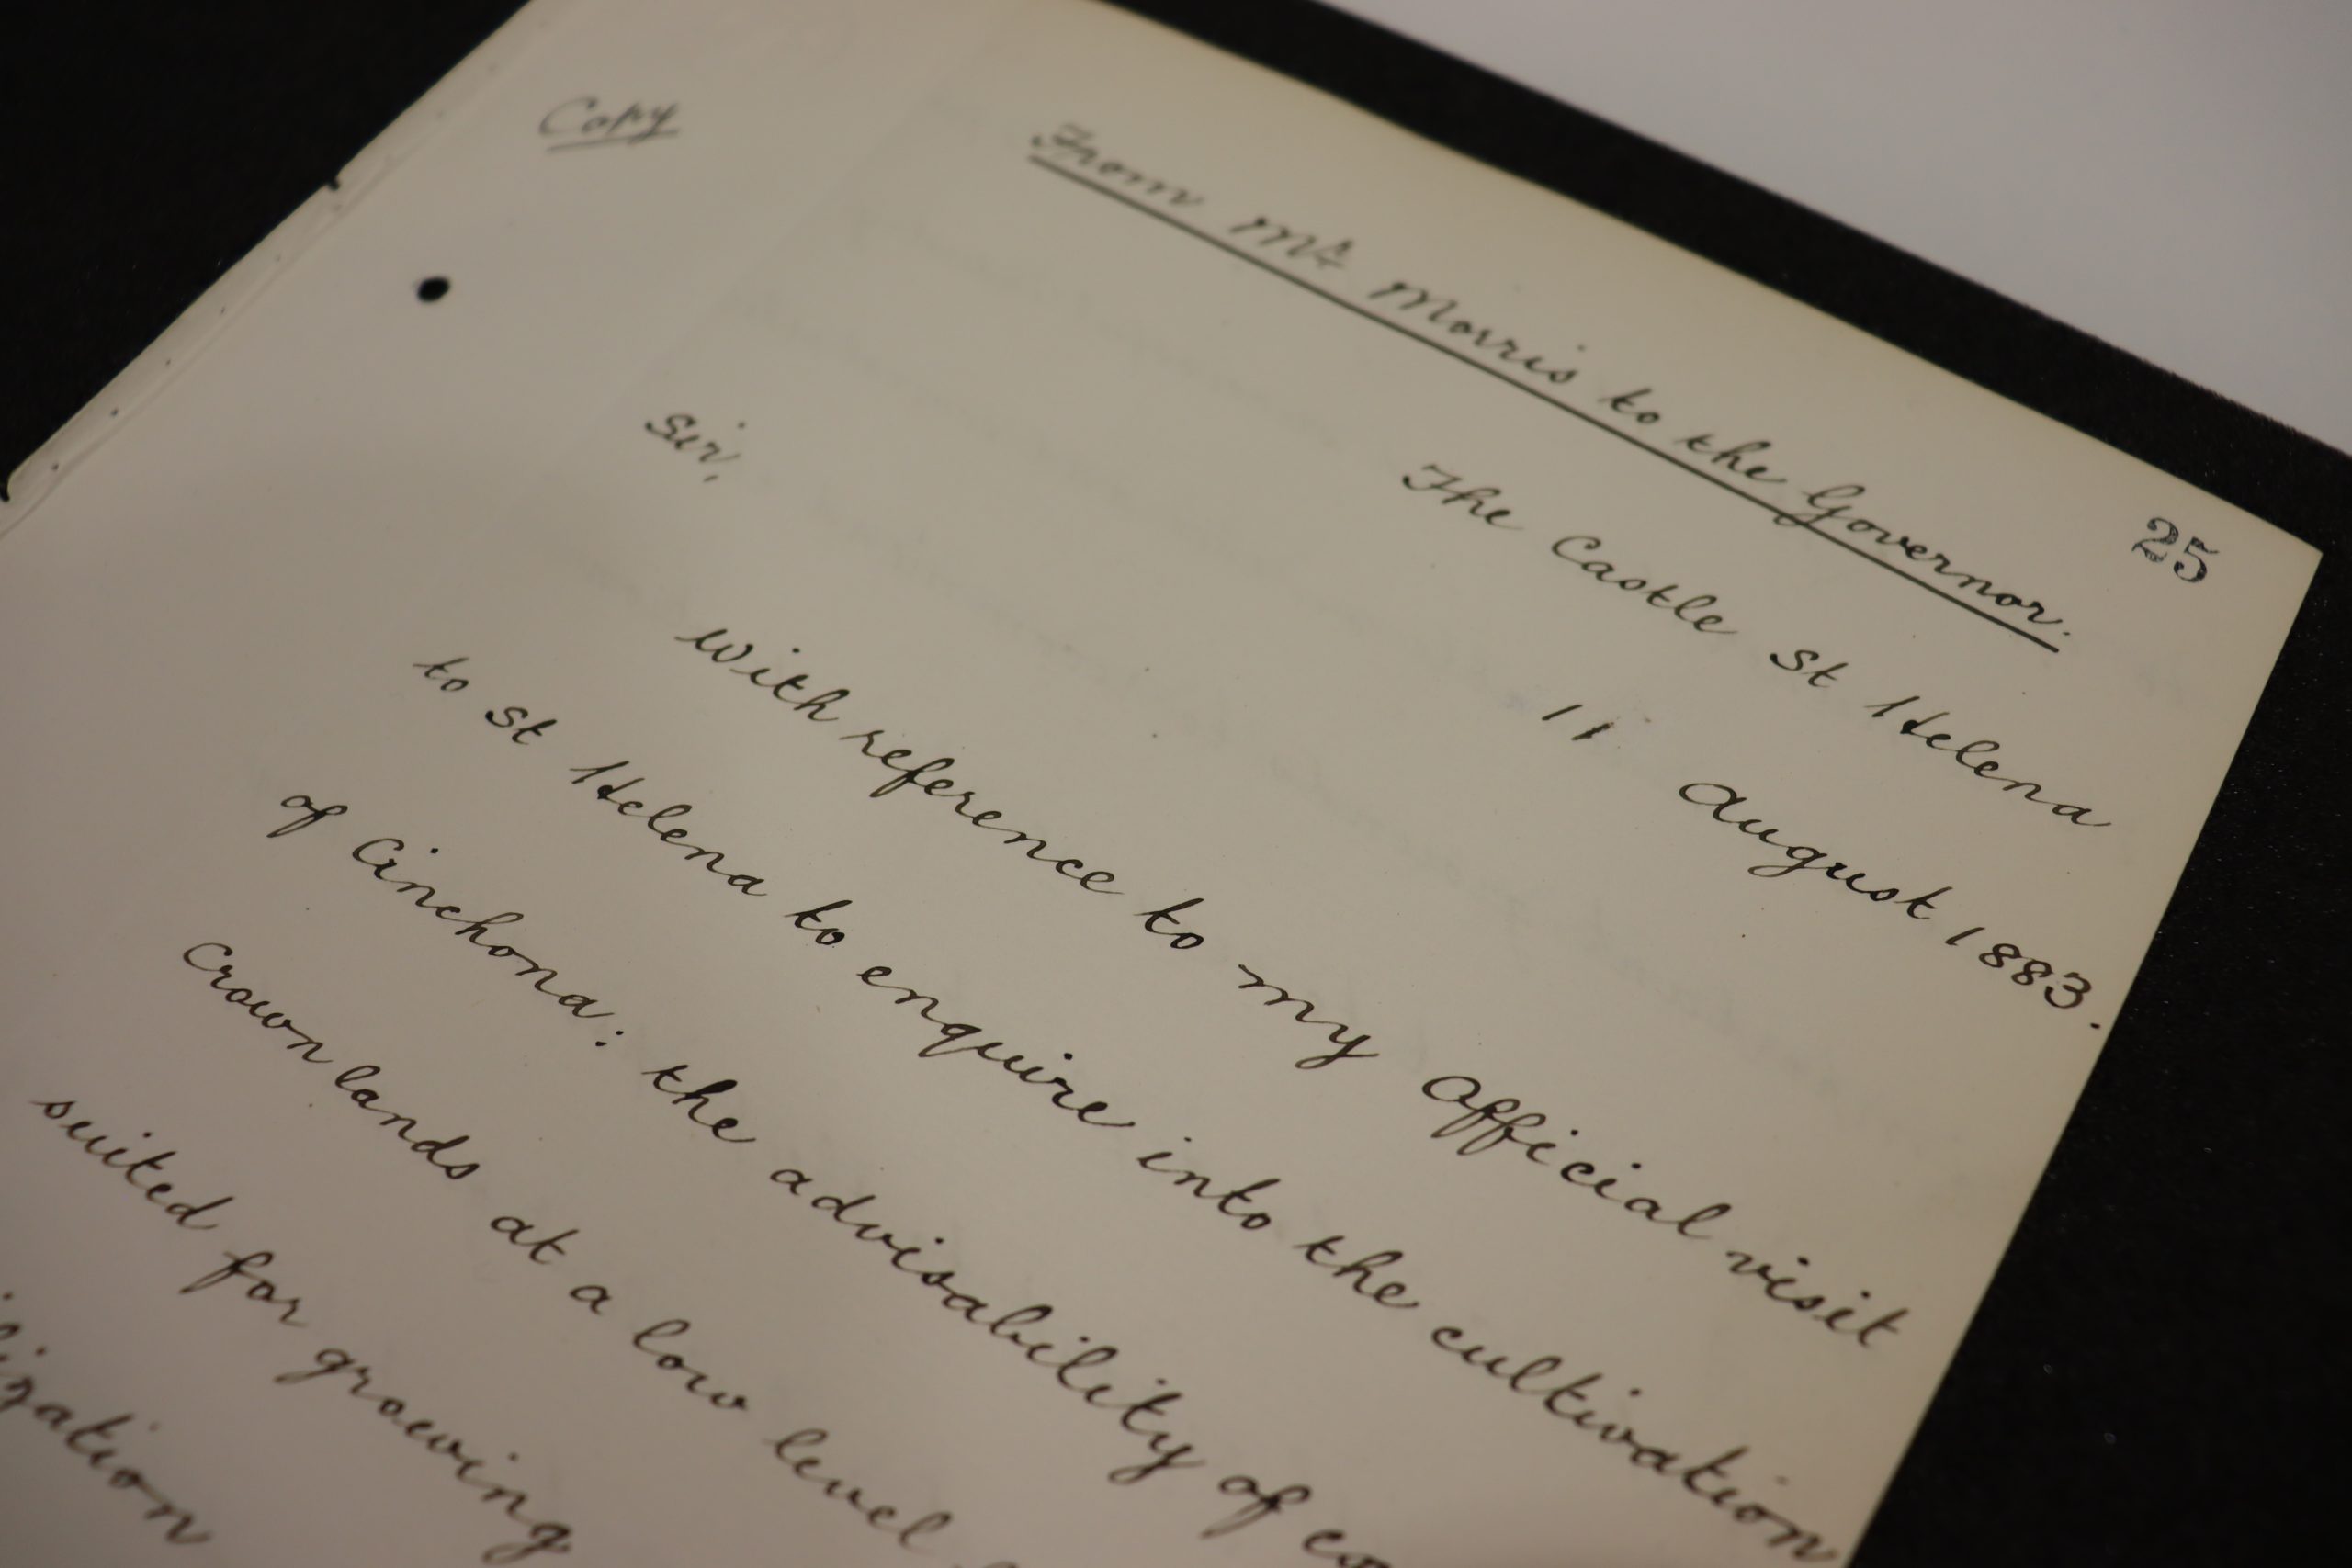 25
Copy
From Mr Morris to the Governor.
The Castle St Helena
11 August 1883.
Sir,
With reference to my Official visit
to St Helena to enquire into the cultivation
of Cinchona: the advisability of
Crown lands at a low level
suited for growing